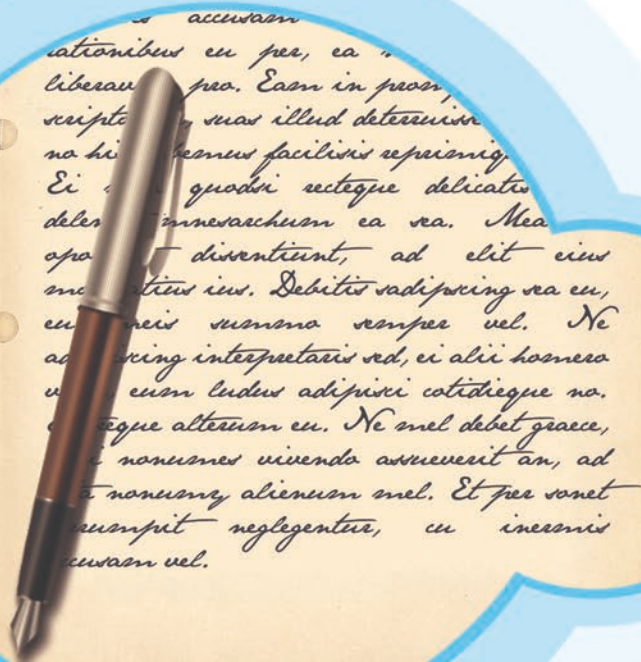 accusam
rationibus eu per, ea
liberav pro. Eam in prom
script , suas illud deterruisse
no hi bemus facilisis reprimiq
Ei quodsi recteque delicatis
delen mnesarchum ea sea. Mea
opo t dissentiunt, ad elit eius
mo atius ius. Debitis sadipscing sea eu,
eu meis summo semper vel. Ne
ad iscing interpretaris sed, ei alii homero
v eum ludus adipisci cotidieque no.
eque alterum eu. Ne mel debet graece,
i nonumes vivendo assueverit an, ad
a nonumy alienum mel. Et per sonet
rumpit neglegentur, cu inermis
cusam vel.